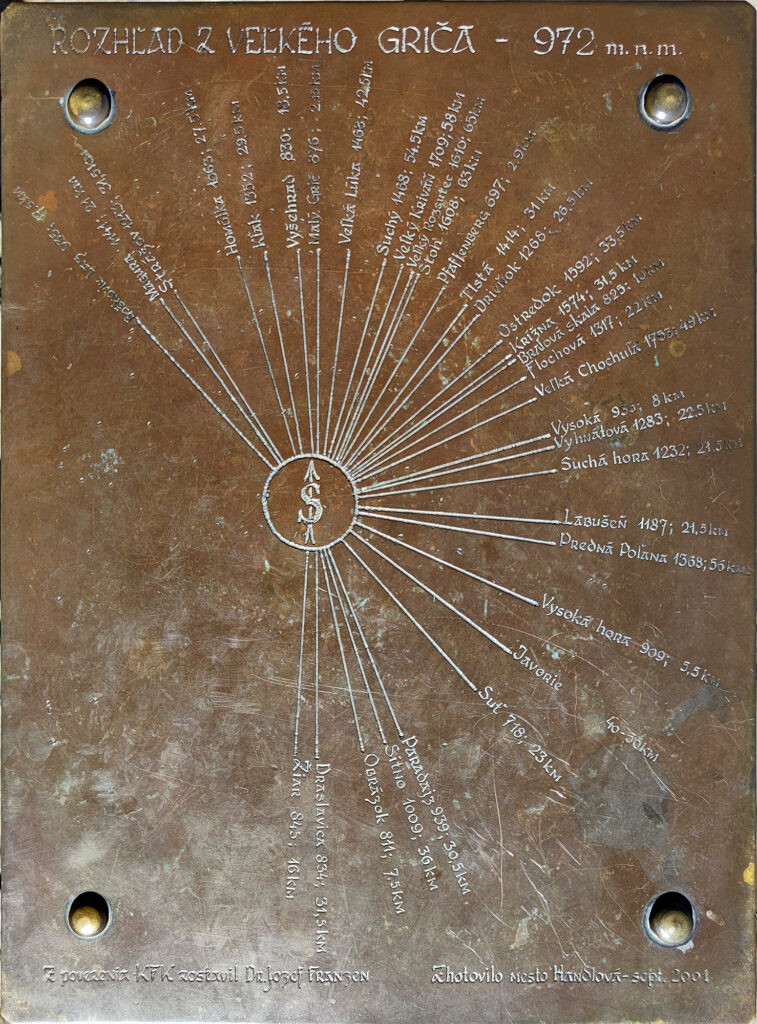 ROZHĽAD Z VEĽKÉHO GRIČA - 972 m.n.m.
Magura 1141; 21 km
Homôlka
Kľak 1352; 29,5 km
Vyšehrad 830; 18,5 km
Malý Grič 876;
Veľká Lúka 1468;
Suchý 1468; 54,5 km
Veľký Kriváň 1709; 58 km
Veľký Rozsutec 1610; 65 km
Stoh 1608; 63 km
Pfaflenberg 697; 2,9 km
Tlstá 1414; 31 km
Drienok 1268; 26,5 km
Ostredok 1592; 33,5 km
Krížna 1574; 31,5 km
Bralová skala 825; 10 km
Flochová 1317; 22 km
Veľká Chochuľa 1753; 49 km
Vysoká 955; 8 km
Vyhnátová 1283; 22,5 km
Suchá hora 1232; 21,5 km
S
Labušeň 1187; 21,5 km
Predná Poľana 1368; 56 km
Vysoká hora 909; 5,5 km
Javorie 40-50 km
Suť 718; 23 km
Paradajz 939; 30,5 km
Sitno 1009; 36 km
Obrázok 811; 7,5 km
Draslavica 834; 31,5 km
Žiar 845; 16 km
Z poverenia KPK zostavil Dr. Jozef Franzen
Zhotovilo mesto Handlová - sept. 2001